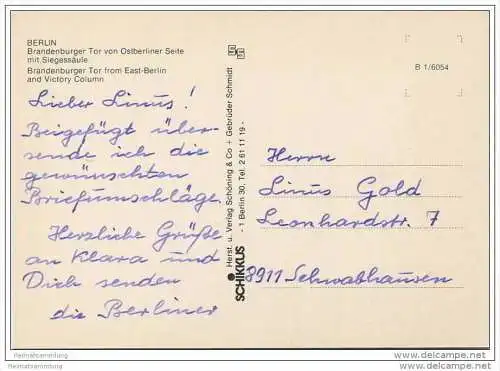 BERLIN
Brandenburger Tor von Ostberliner Seite
mit Siegessäule
Brandenburger Tor from East-Berlin
and Victory Column
B 1/6054
Lieber Linus!
Beigefügt über-
sende ich die
gewünschten
Briefumschläge.
Herzliche Grüße
an Klara und
Dich senden
die Berliner
SCHIKKUS
Herst. u. Verlag Schöning & Co + Gebrüder Schmidt
- 1 Berlin 30, Tel. 2 61 11 19 -
Herrn
Linus Gold
Leonhardstr. 7
8911 Schwabhausen
Heimatsammlung
Heimatsammlung
www.delcampe.net